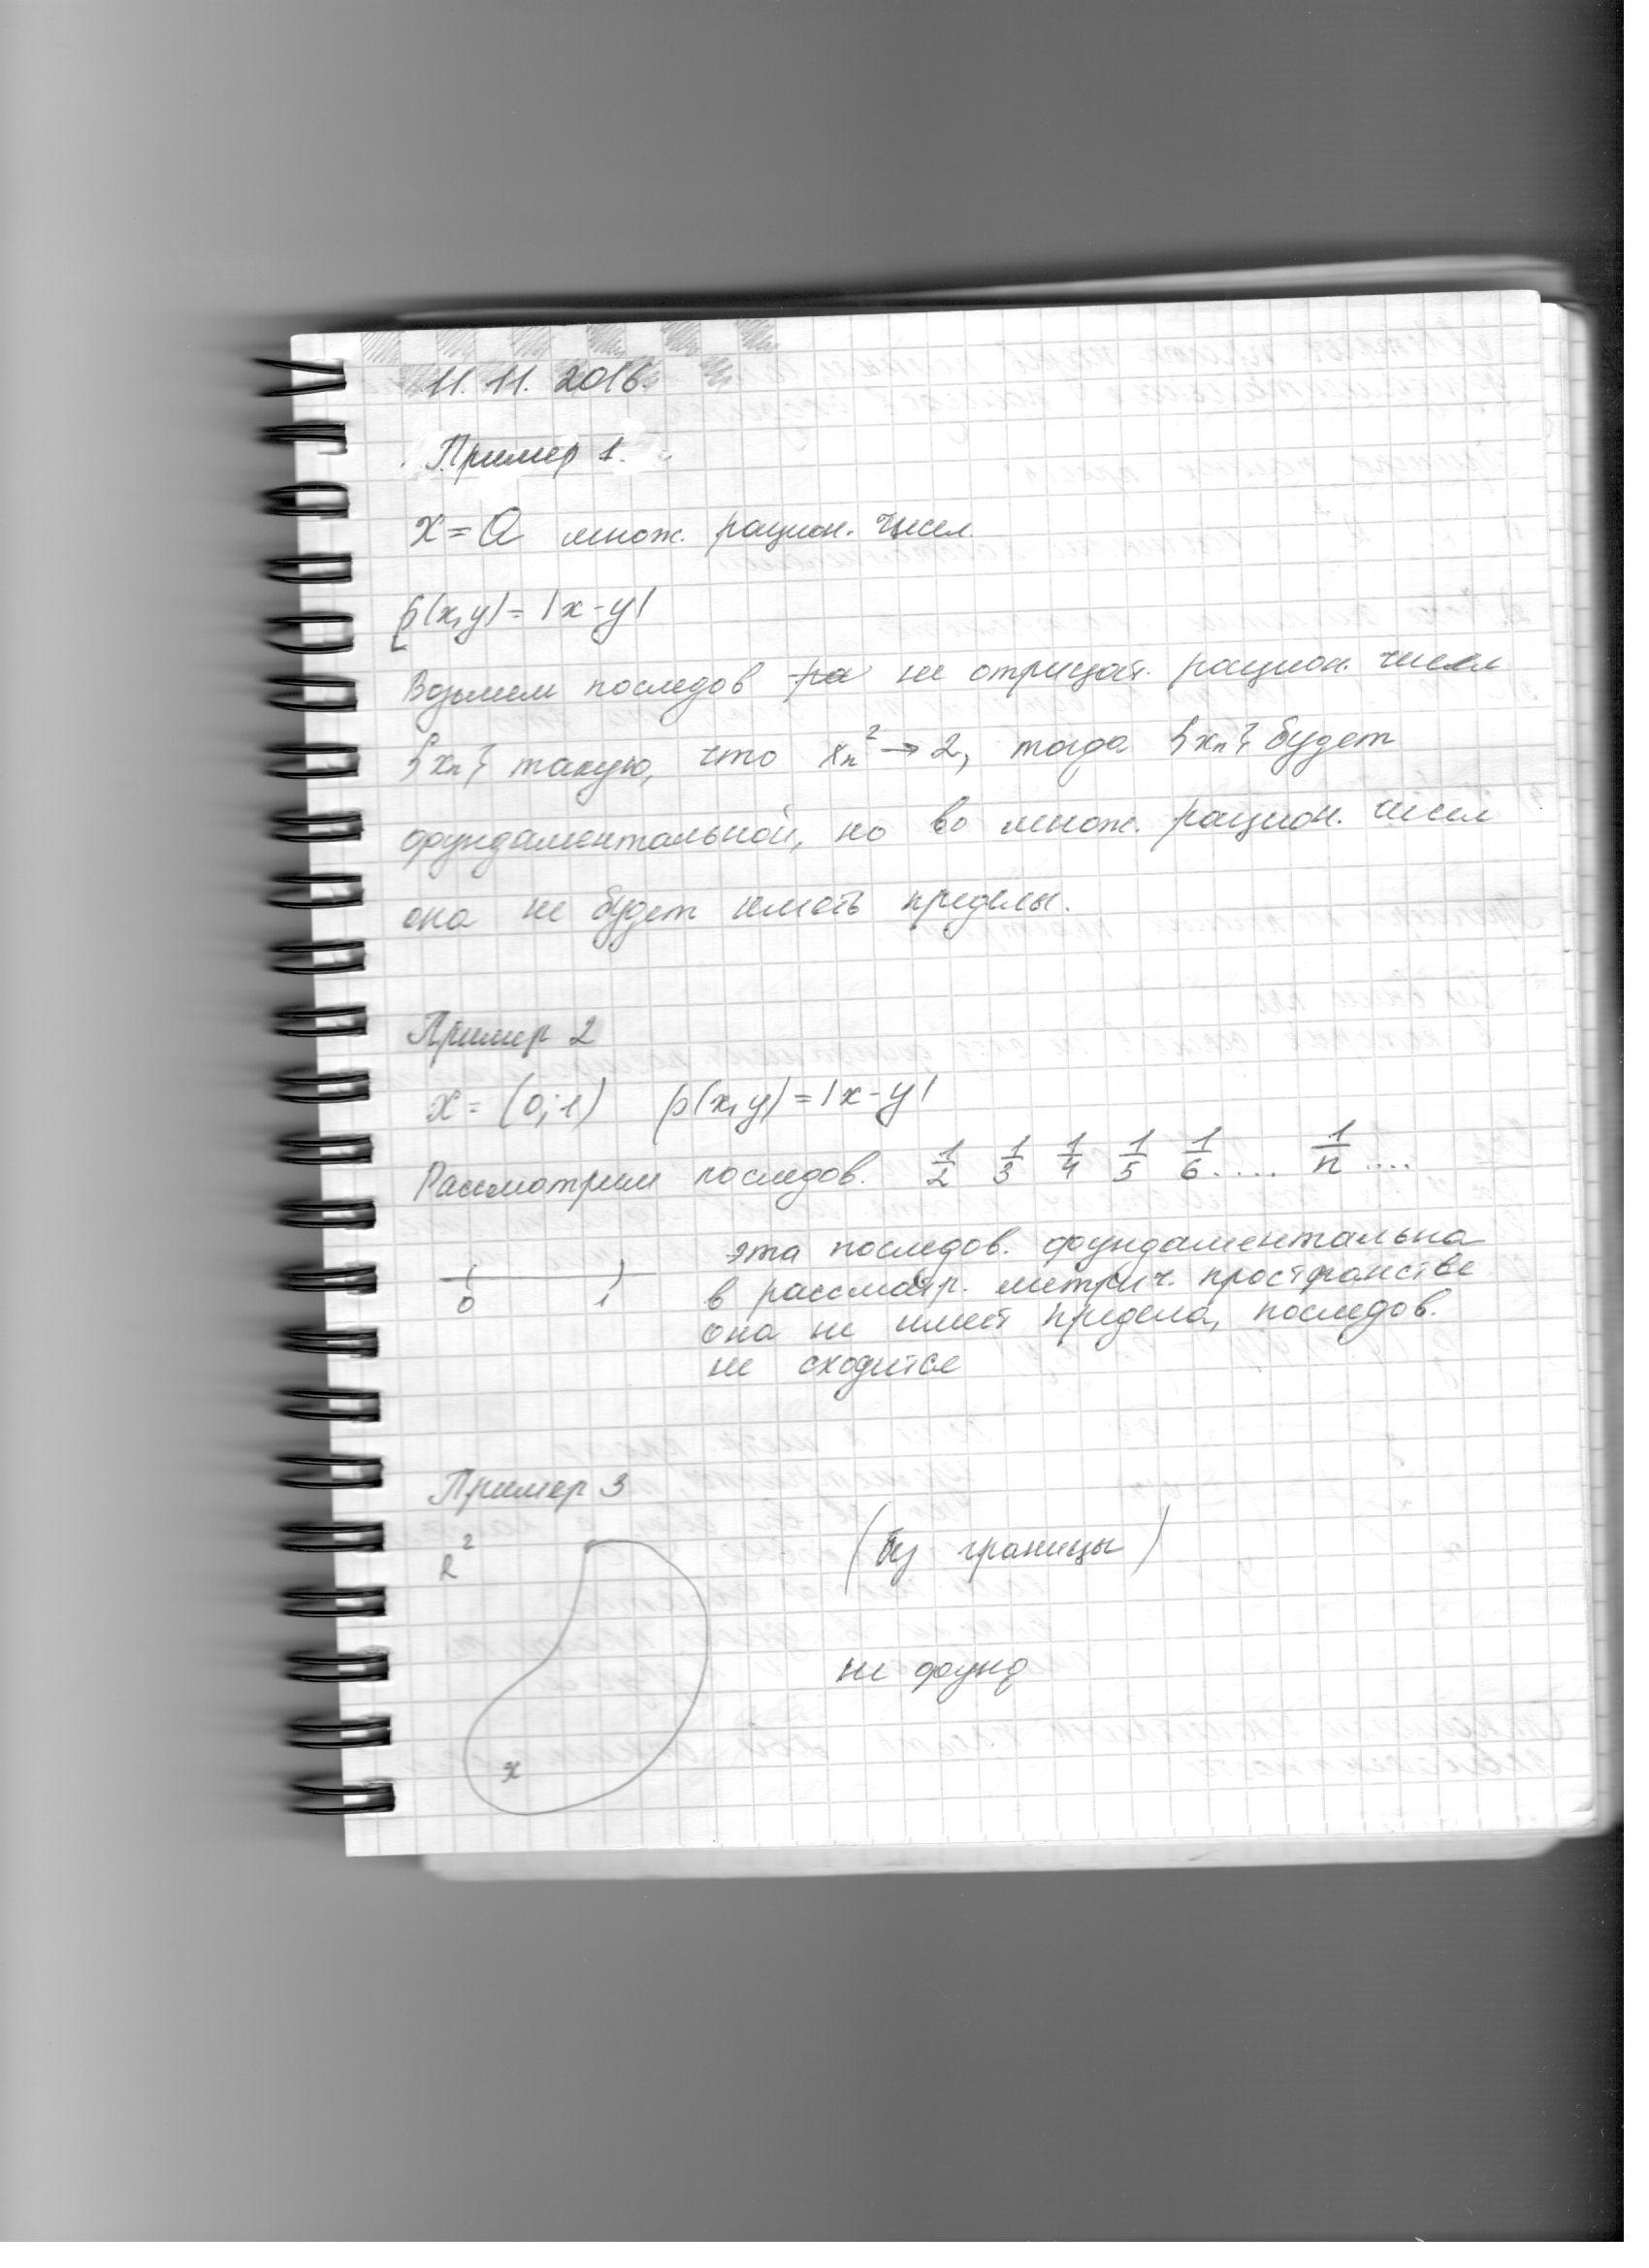 11.11.2016.
Пример 1.
X = Q множ. рацион. чисел.
ρ(x,y) = |x-y|
Возьмем последов ра не отрицат. рацион. чисел
{xₙ} такую, что xₙ² → 2, тогда {xₙ} будет
фундаментальной, но во множ. рацион. чисел
она не будет иметь пределы.
Пример 2
X = (0;1) ρ(x,y) = |x-y|
Рассмотрим последов. 1/2 1/3 1/4 1/5 1/6 .... 1/n ....
эта последов. фундаментальна
в рассматр. метрич. пространстве
0 1
она не имеет предела, последов.
не сходится
Пример 3
R² (без границы)
не фунд
x